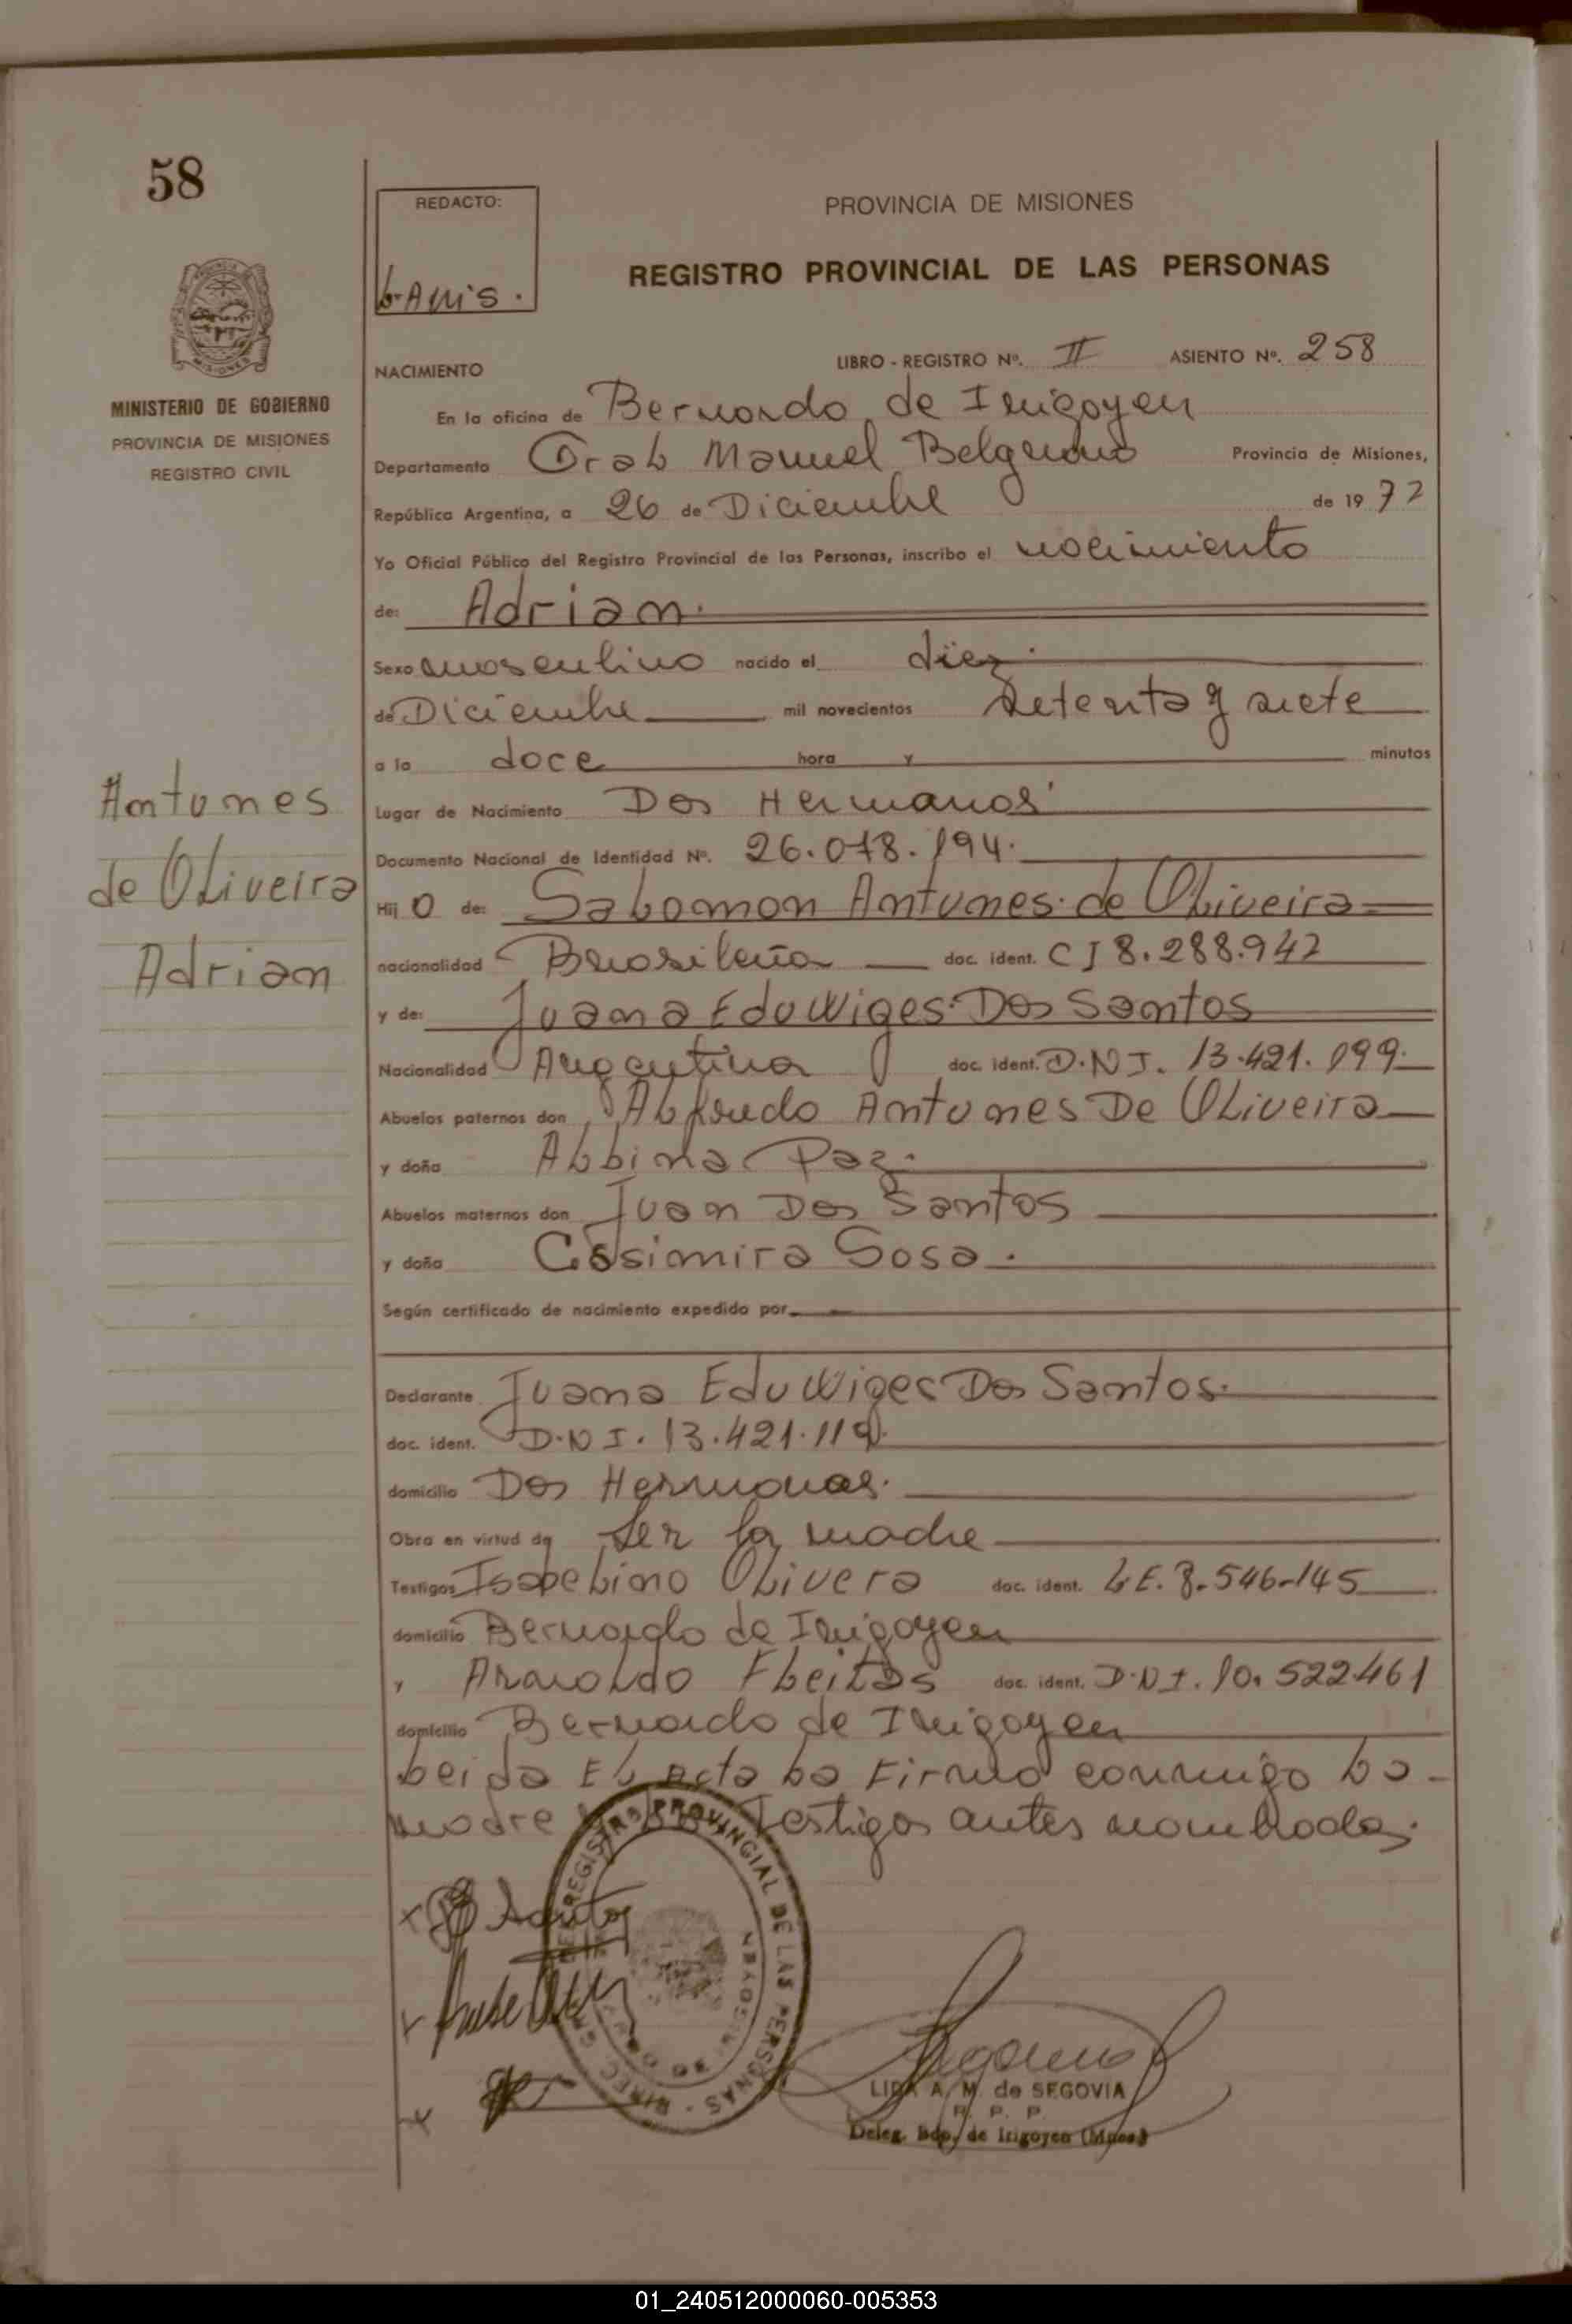 58
REDACTO:
L. Anis.
PROVINCIA DE MISIONES
REGISTRO PROVINCIAL DE LAS PERSONAS
MINISTERIO DE GOBIERNO
PROVINCIA DE MISIONES
REGISTRO CIVIL
NACIMIENTO LIBRO - REGISTRO Nº. II ASIENTO Nº. 258
En la oficina de Bernardo de Irigoyen
Departamento Gral Manuel Belgrano Provincia de Misiones,
República Argentina, a 26 de Diciembre de 19 77
Yo Oficial Público del Registro Provincial de las Personas, inscribo el nacimiento
de: Adrian.
Sexo masculino nacido el diez.
de Diciembre mil novecientos setenta y siete
a la doce hora y minutos
Lugar de Nacimiento Dos Hermanas
Documento Nacional de Identidad Nº. 26.078.194.
Hij o de: Salomon Antunes de Oliveira
nacionalidad Brasileña doc. ident. CI 8.288.942
y de: Juana Eduwiges Dos Santos
Nacionalidad Argentina doc. ident. D.N.I. 13.421.199.
Abuelos paternos don Alfredo Antunes De Oliveira
y doña Albina Paz.
Abuelos maternos don Juan Dos Santos
y doña Casimira Sosa.
Según certificado de nacimiento expedido por
Antunes
de Oliveira
Adrian
Declarante Juana Eduwiges Dos Santos.
doc. ident. D.N.I. 13.421.119.
domicilio Dos Hermanas.
Obra en virtud de ser la madre
Testigos Isabelino Olivera doc. ident. L.E. 8.546.145
domicilio Bernardo de Irigoyen
y Arnoldo Fleitas doc. ident. D.N.I. 10.522.461
domicilio Bernardo de Irigoyen
Leida El Acta La Firma conmigo La
madre Testigos antes nombrados.
Santos
REGISTRO PROVINCIAL DE LAS PERSONAS
LIDA A. M. de SEGOVIA
R. P. P.
Deleg. Bdo. de Irigoyen (Mnes)
01_240512000060-005353